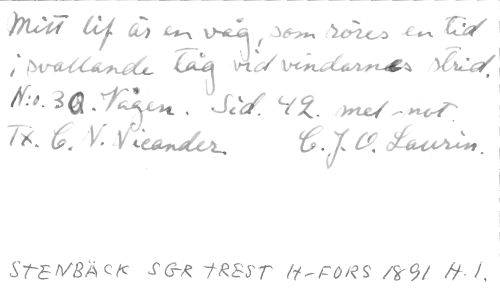 Mitt lif är en våg, som röres en tid
i svallande tåg vid vindarnes strid.
N:o. 30. Vågen. Sid. 42. mel-not.
Tx. C. V. Vicander. C. J. O. Laurin.
STENBÄCK SGR TREST H-FORS 1891 H.1.